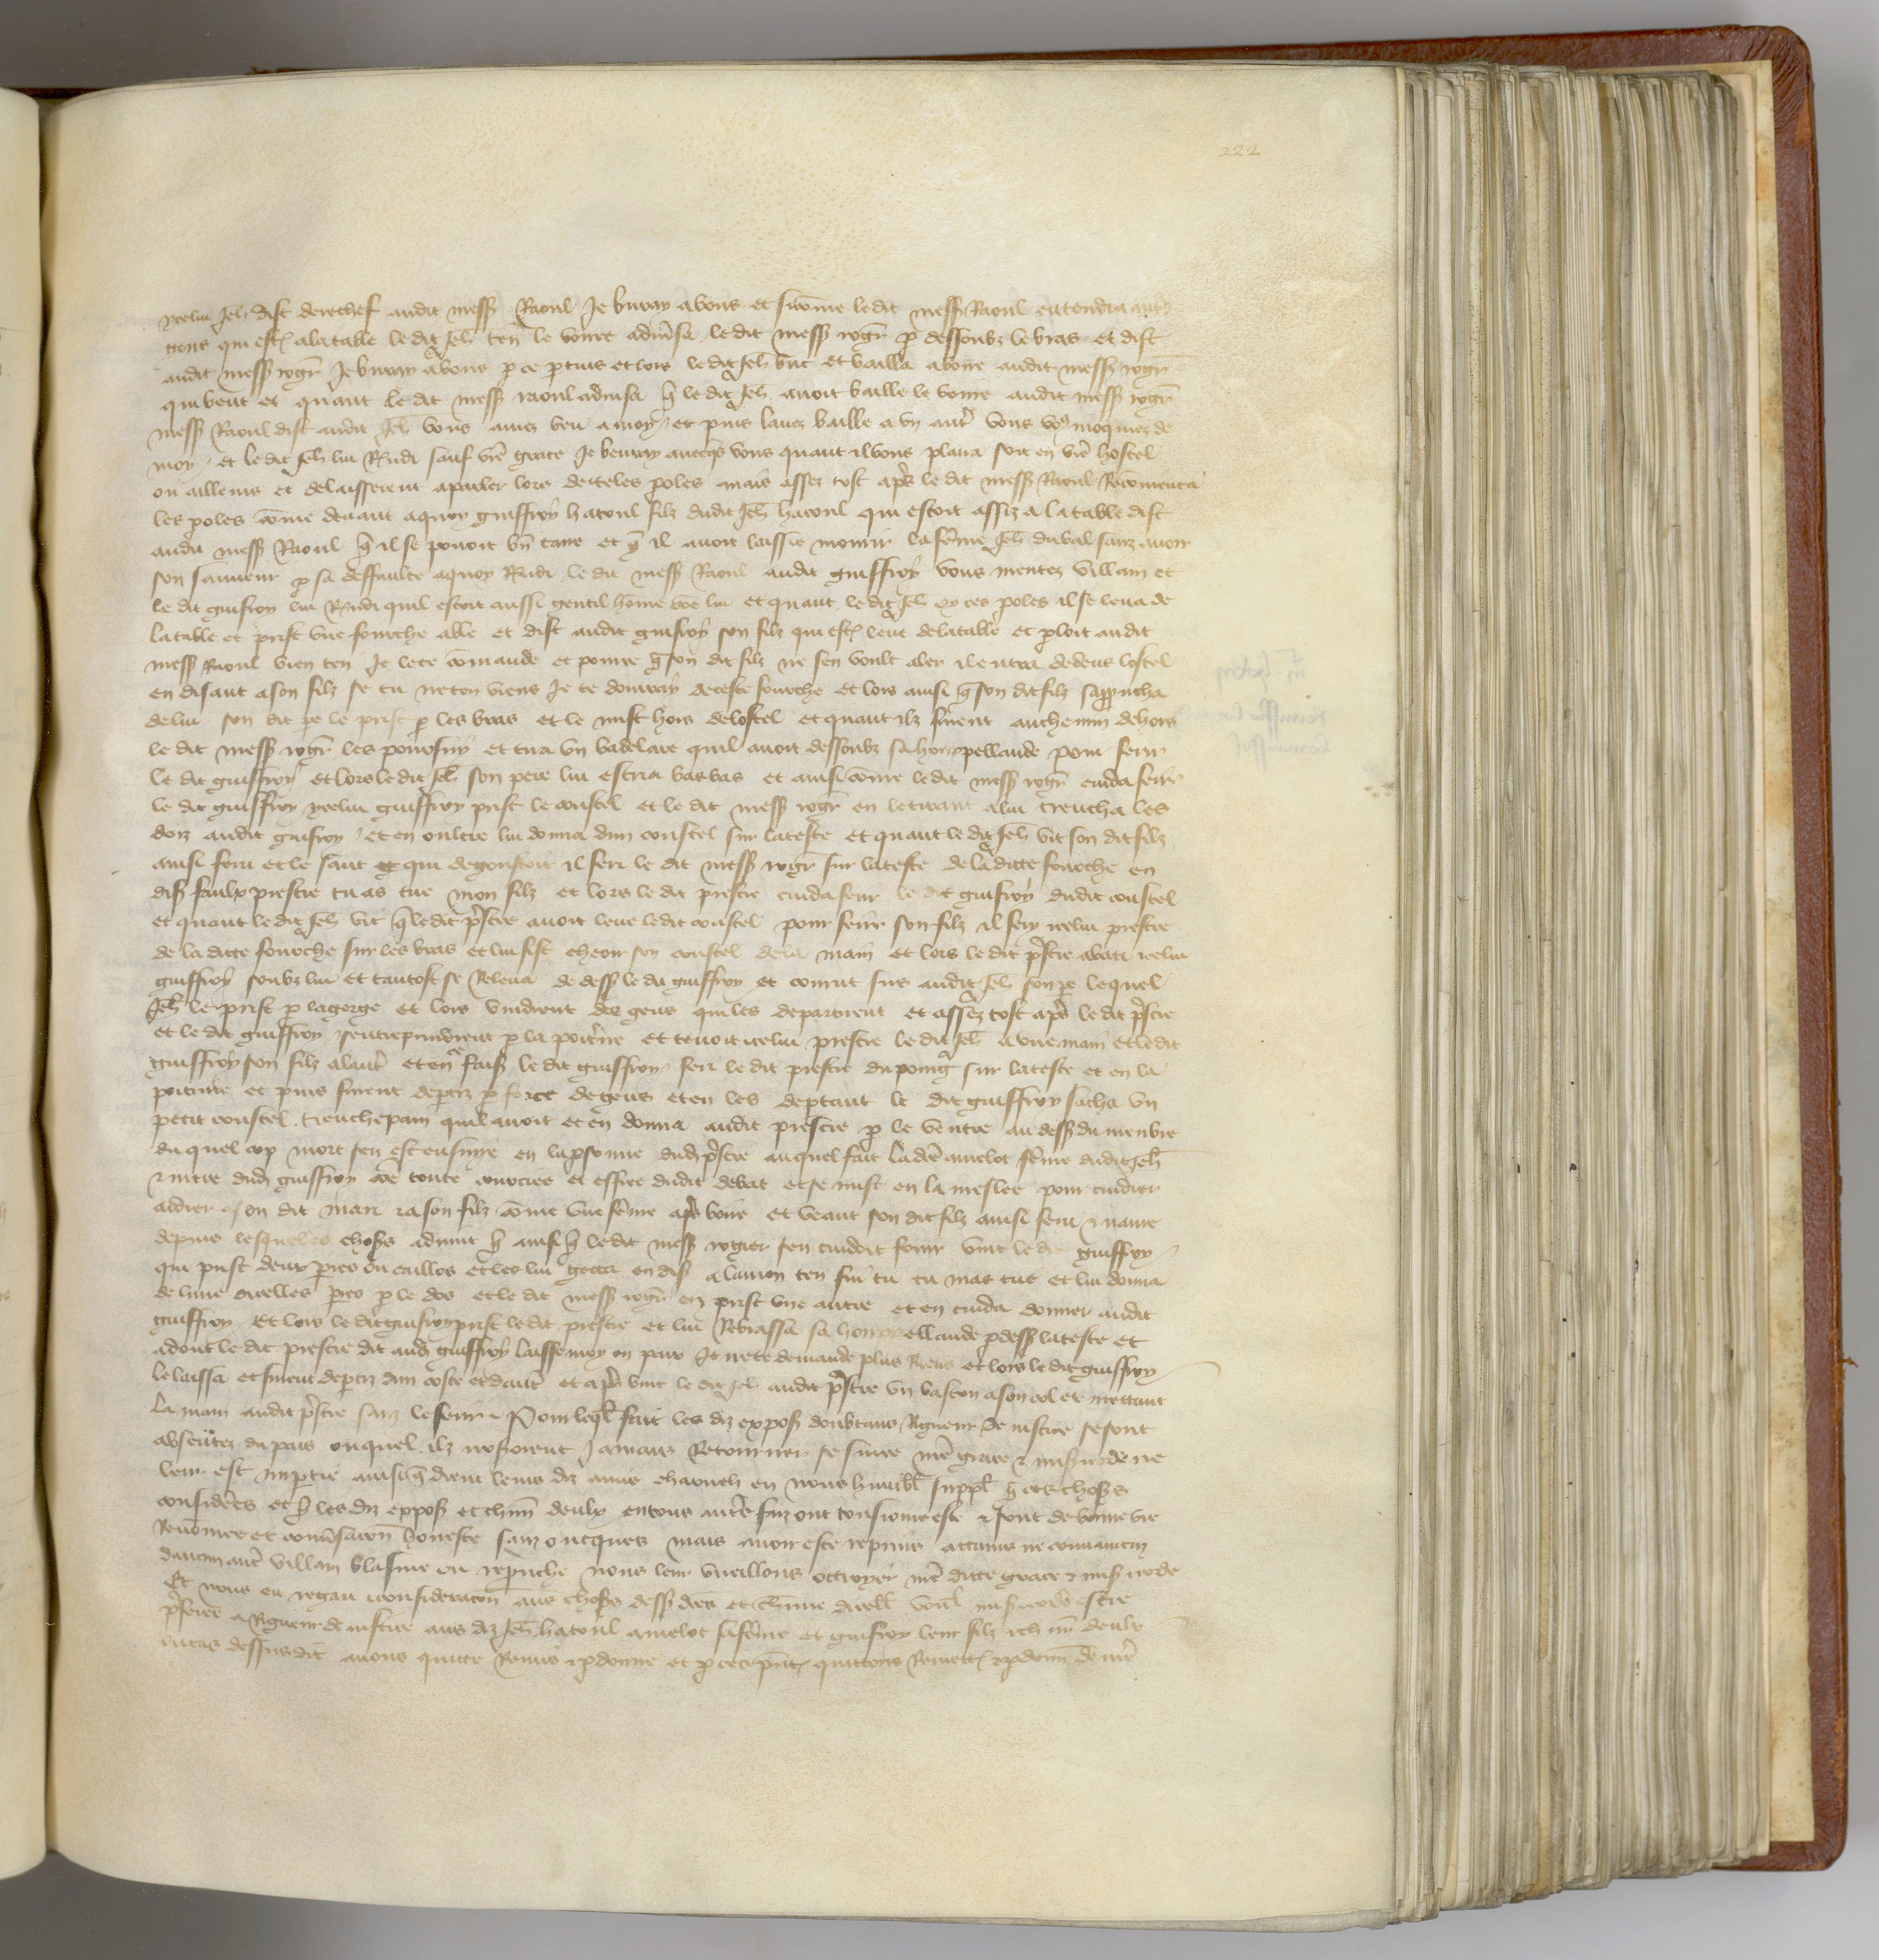 222
icelui Jeh dist derechef audit mess Raoul Je buray a vous et si come ledit mess Raoul entendra aux
gens qui est a la table ledit Jeh ten le voirre advisa ledit mess rogr p dessoubz le bras et dist
audit mess rogr Je buray a vous p ce ptuis et lors ledit Jeh but et bailla a boire audit mess rogr
qui beut et quant le dit mess raoul advisa q le dit Jeh avoit baille le voirre audit mess rogr
mess Raoul dist audit Jeh vous avez beu a moy et puis lavez baille a un autre vous vo moquez de
moy et le dit Jeh lui Rndi sauf vre grace Je beuray avecqs vous quant il vous plaira soit en vre hostel
ou ailleurs et delaisserent a parler lors de teles poles mais assez tost apres le dit mess Raoul Recomenca
les poles come devant a quoy guiffroy hatoul filz dudit Jeh hatoul qui estoit assiz a la table dist
audit mess Raoul q il se povoit bn taire et q il avoit laissie mourir la feme Jeh duval sanz avoir
son sauveur p sa deffaulte a quoy Rndi le dit mess Raoul audit guiffroy vous mentez villain et
le dit guifroy lui Rndi quil estoit aussi gentil home coe lui et quant le dit Jeh oy ces poles il se leva de
la table et prist une fourche able et dist audit guifroy son filz qui est leve de la table et ploit audit
mess Raoul vien ten Je le te comande et pource q son dit filz ne sen voult aler il entra dedens lostel
en disant a son filz se tu ne ten viens Je te donray de ceste fourche et lors ainsi q son dit filz sapproucha
de lui son dit pe le prist p les bras et le mist hors de lostel et quant ilz furent au chemin dehors
le dit mess rogr les poursuy et tira un badelare quil avoit dessoubz sa houppellande pour ferir
le dit guiffroy et lors le dit Jeh son pere lui escria bas bas et ainsi come le dit mess rogr cuida ferir
le dit guiffroy ycelui guiffroy prist le coustel et le dit mess rogr en le tirant a lui trencha les
doiz audit guifroy et en oultre lui donna dun coustel sur la teste et quant le dit Jeh vit son dit filz
ainsi feru et le sanc qui degoustoit il feri le dit mess rogr sur la teste de la ditte fourche en
dis faulx prestre tu as tue mon filz et lors le dit prestre cuida ferir le dit guifroy dudit coustel
et quant le dit Jeh vit q ledit pstre avoit leve ledit coustel pour ferir son filz il fery icelui prestre
de la ditte fourche sur les bras et lui fist cheoir son coustel de la main et lors le dit pstre abati icelui
guiffroy soubz lui et tantost se Releva de dess le dit guiffroy et courut sus audit Jeh son pe lequel
Jeh le prist p la gorge et lors vindrent des gens qui les departirent et assez tost apres le dit pstre
et le dit guiffroy sentreprindrent p la poitrine et tenoit icelui prestre le dit Jeh a une main et ledit
guiffroy son filz a lautre et en faisant le dit guiffroy feri le dit prestre du poing sur la teste et en la
poitrine et puis furent deptiz p force de gens et en les deptant le dit guiffroy sacha un
petit coustel trenchepain quil avoit et en donna audit prestre p le ventre au dess du menbre
du quel cop mort sen est ensuiye en la psonne dud pstre auquel fait la dce amelot feme dudit Jeh
et mere dud guiffroy coe toute courciee et effree dudit debat et se mist en la meslee pour cuidier
aidier a son dit mari et a son filz come une feme apres boire et veant son dit filz ainsi feru et navre
depuis lesquelles choses advint q ainsi q le dit mess rogier sen cuidoit fouir vint le dit guiffroy
qui prist deux pierres ou cailloz et les lui getta en dis a larron ten fui tu tu mas tue et lui donna
de lune dicelles pierres p le dos et le dit mess rogr en prist une autre et en cuida donner audit
guiffroy Et lors le dit guifroy prist ledit prestre et lui Rebrassa sa houppellande p dess la teste et
adont le dit prestre dit aud guiffroy laisse moy en paix Je ne te demande plus Riens et lors le dit guiffroy
le laissa et furent deptiz dun coste et dautre et apres vint le dit Jeh audit pstre un baston a son col et mettant
la main audit pstre sanz le ferir Pour leql fait les diz expos doubtans Rgueur de justice se sont
absentez du pais ouquel ilz noseroient jamais Retourner se sur ce nre grace et misicorde ne
leur est impartie ainsi q dient leurs diz amis charnelz en nous humbl suppl q ces choses
considerees et q les diz expos et chun deulx en tous autres faiz ont tousiours este et sont de bonne vie
Renomee et conversacion honeste sanz oncques mais avoir este reprins attains ne convaincuz
daucun autre villain blasme ou reprouche nous leur vueillons octroyer nre ditte grace et misicorde
Et nous eu regart et consideracion aus choses dess dces et come dicell voul misicorde estre
pferee a Rgueur de justice aus diz Jeh hatoul amelot sa feme et guifroy leur filz et chun deulx
ou cas dessus dit avons quitte Remis et pdonne et p ces pntes quittons Remett et pdonn de nre